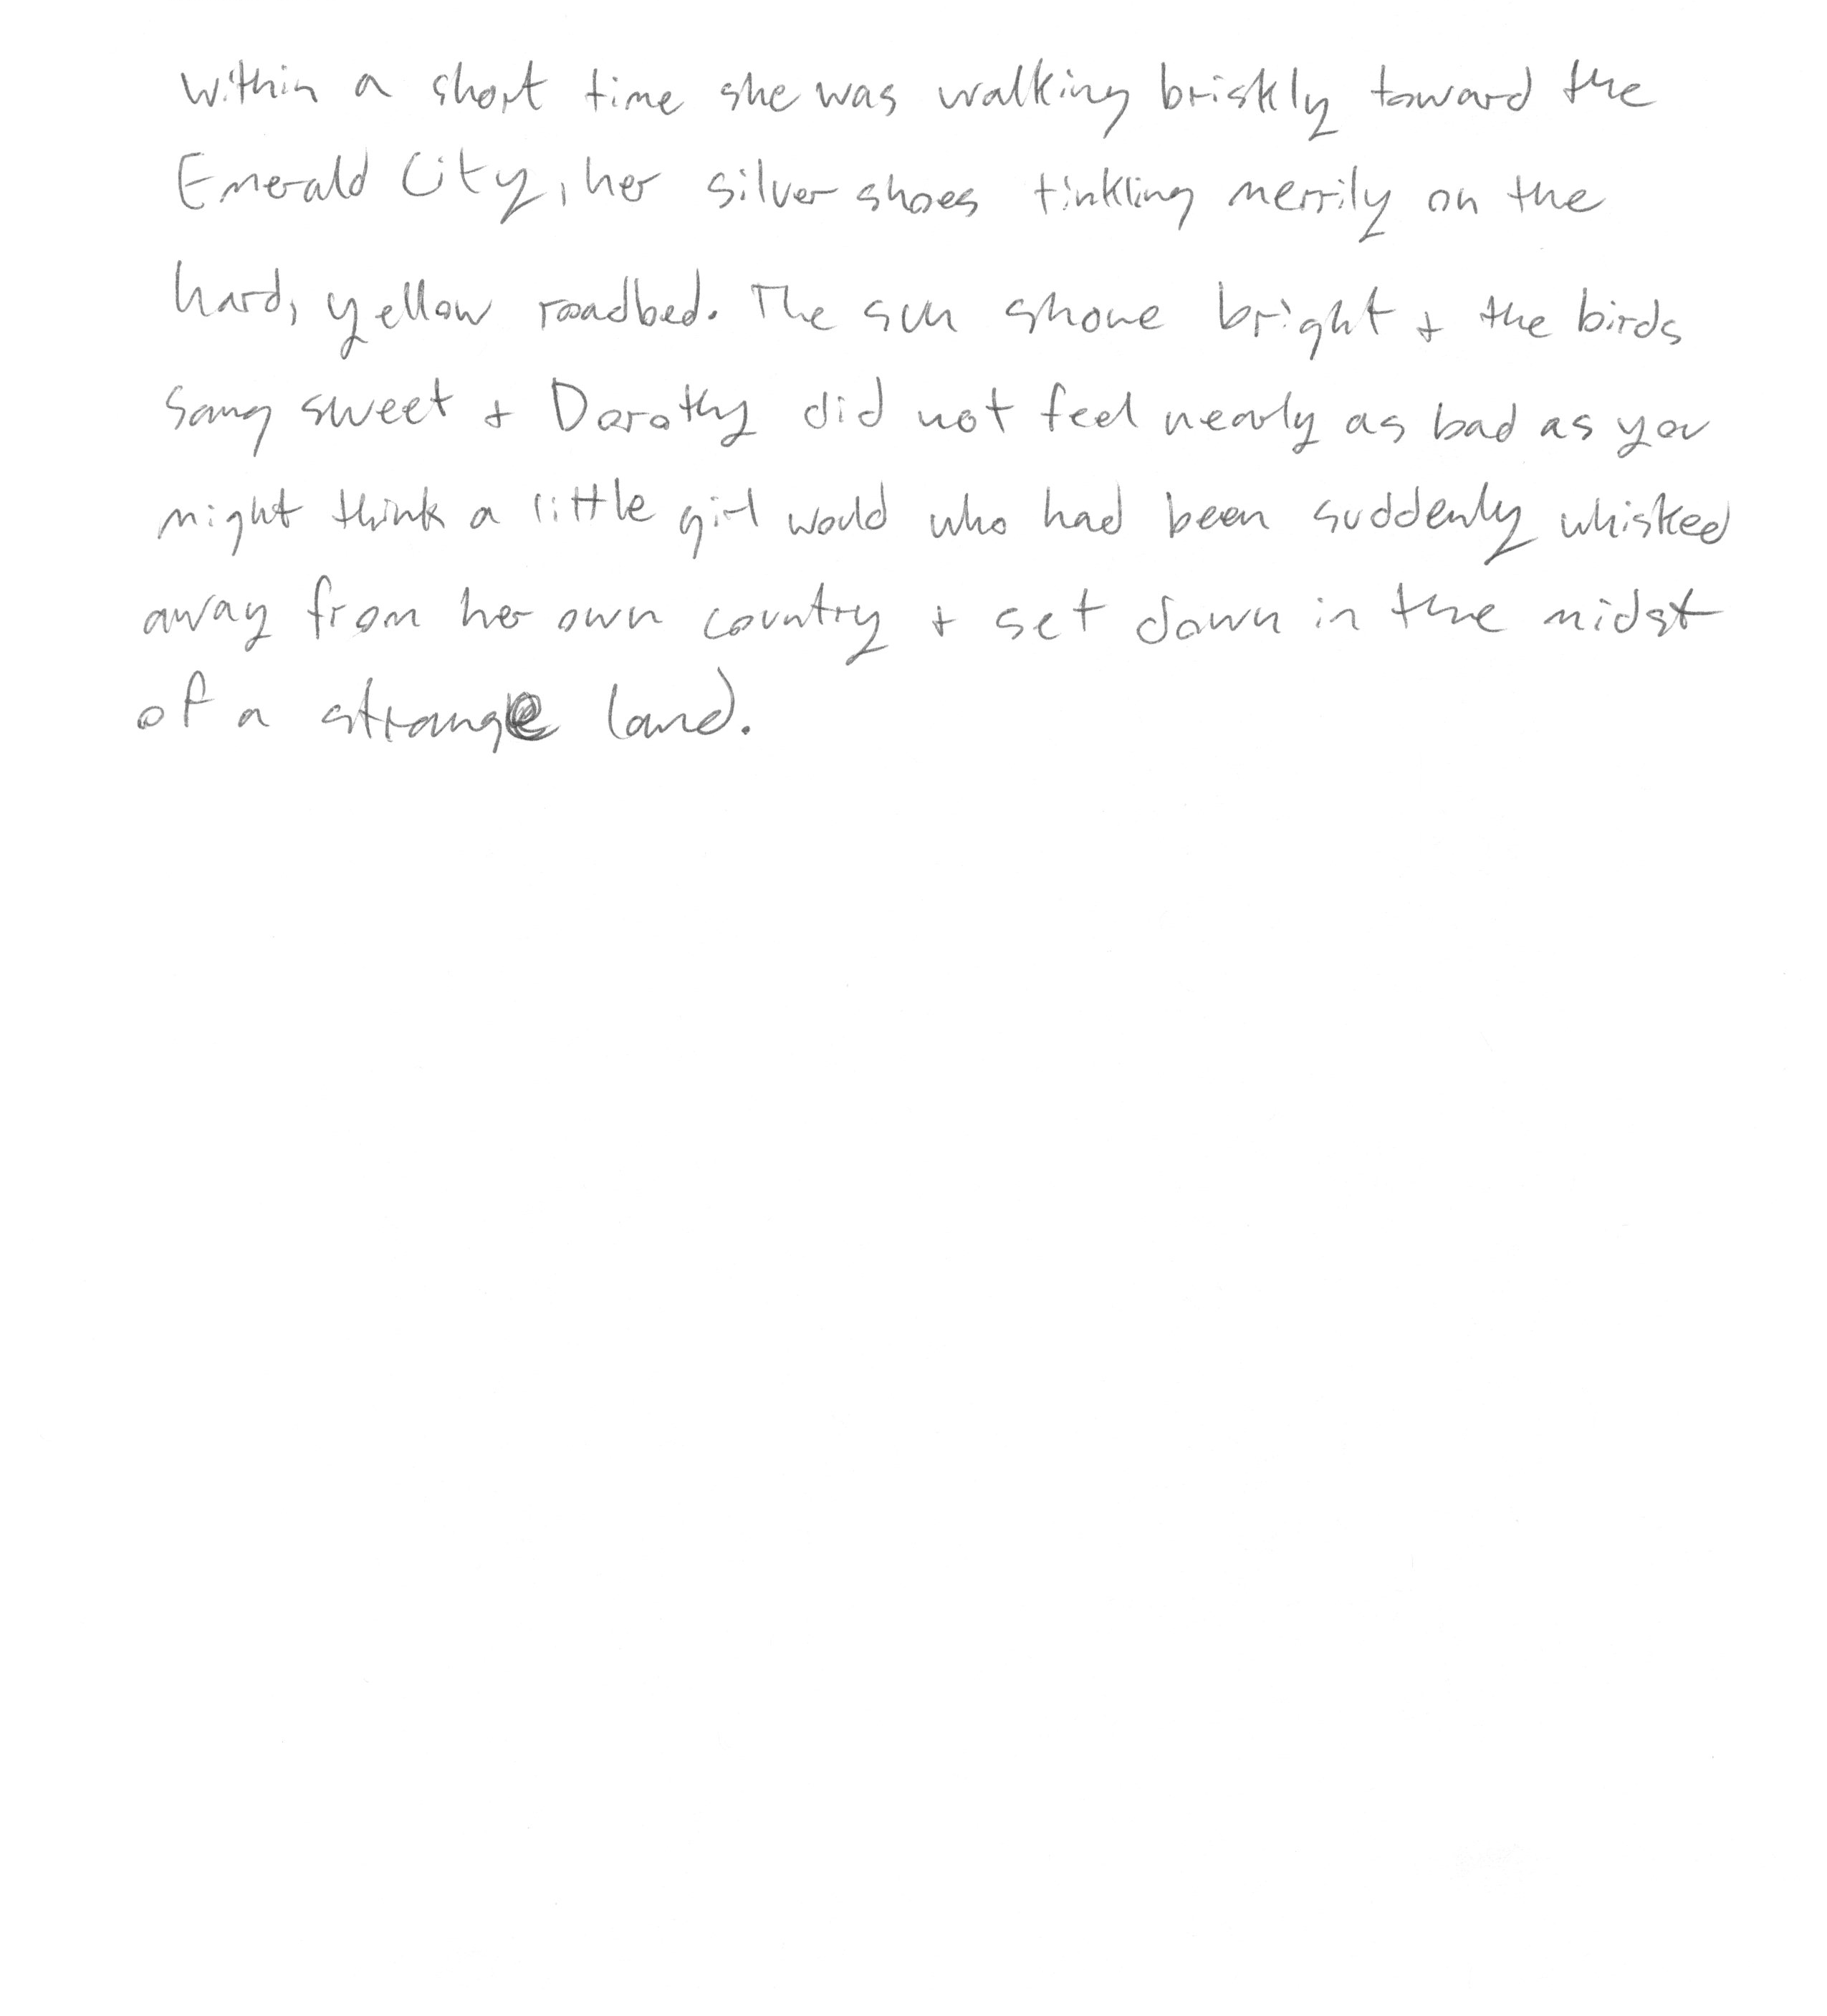 Within a short time she was walking briskly toward the
Emerald City, her silver shoes tinkling merrily on the
hard, yellow roadbed. The sun shone bright + the birds
sang sweet + Dorothy did not feel nearly as bad as you
might think a little girl would who had been suddenly whisked
away from her own country + set down in the midst
of a strange land.